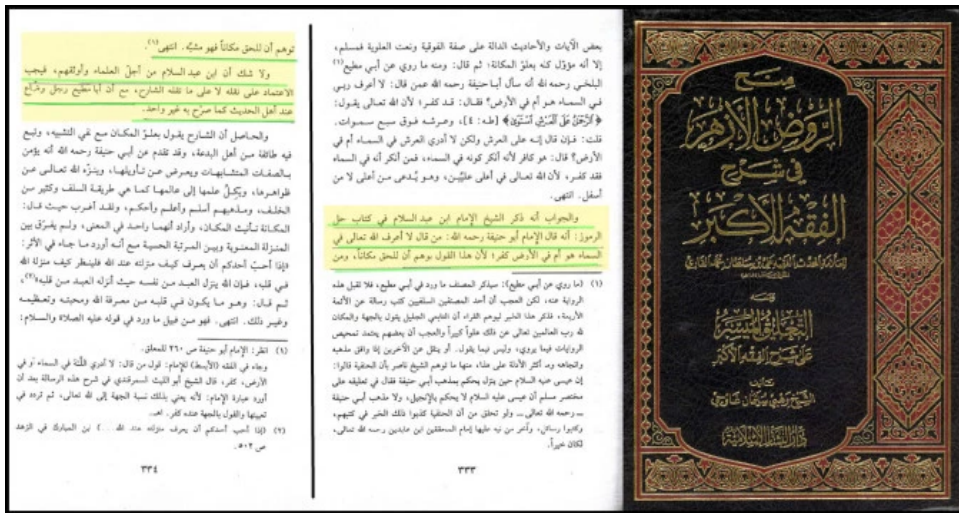 بعض الآيات والأحاديث الدالة على صفة الفوقية ونعت العلوية فمسلم،
إلا أنه مؤوّل كله بعلوّ المكانة؛ ثم قال: ومنه ما روي عن أبي مطيع(١)
البلخي رحمه الله أنه سأل أبا حنيفة رحمه الله عمن قال: لا أعرف ربي
في السماء هو أم في الأرض؟ فقال: قد كفر؛ لأن الله تعالى يقول:
﴿الرَّحْمَنُ عَلَى الْعَرْشِ اسْتَوَى﴾ [طه: ٤]، وعرشه فوق سبع سموات.
قلت: فإن قال إنه على العرش ولكن لا أدري العرش في السماء أم في
الأرض؟ قال: هو كافر لأنه أنكر كونه في السماء، فمن أنكر أنه في السماء
فقد كفر، لأن الله تعالى في أعلى علّيين، وهو يُدعى من أعلى لا من
أسفل. انتهى.
والجواب أنه ذكر الشيخ الإمام ابن عبد السلام في كتاب حل
الرموز: أنه قال الإمام أبو حنيفة رحمه الله: من قال لا أعرف الله تعالى في
السماء هو أم في الأرض كفر؛ لأن هذا القول يوهم أن للحق مكاناً، ومن
(١) (ما روي عن أبي مطيع): سيذكر المصنف ما ورد في أبي مطيع، فلا تقبل هذه
الرواية عنه، لكن العجب أن أحد المصنفين السلفيين كتب رسالة عن الأئمة
الأربعة، فذكر هذا الخبر ليوهم القراء أن التابعي الجليل يقول بالجهة والمكان
لله رب العالمين تعالى عن ذلك علواً كبيراً والعجب أن بعضهم يعتمد تمحيص
الروايات فيما يروي، وليس فيما يقول. أو ينقل عن الآخرين إذا وافق مذهبه
واتجاهه ومد أكثر الأدلة على هذا، منها ما توهم الشيخ ناصر بأن الحنفية قالوا:
إن عيسى عليه السلام حين ينزل يحكم بمذهب أبي حنيفة فقال في تعليقه على
مختصر مسلم أن عيسى عليه السلام لا يحكم بالإنجيل، ولا مذهب أبي حنيفة
ـ رحمه الله تعالى ـ ولو تحقق من أن الحنفية كذبوا ذلك الخبر في كتبهم،
وكتبوا رسائل، وآخر من نبه عليها إمام المحققين ابن عابدين رحمه الله تعالى،
لكان خيراً.
٣٣٣
توهم أن للحق مكاناً فهو مشبّه. انتهى(١).
ولا شك أن ابن عبد السلام من أجلّ العلماء وأوثقهم، فيجب
الاعتماد على نقله لا على ما نقله الشارح، مع أن أبا مطيع رجل وضّاع
عند أهل الحديث كما صرّح به غير واحد.
والحاصل أن الشارح يقول بعلوّ المكان مع نفي التشبيه، وتبع
فيه طائفة من أهل البدعة، وقد تقدم عن أبي حنيفة رحمه الله أنه يؤمن
بالصفات المتشابهات ويعرض عن تأويلها، وينزّه الله تعالى عن
ظواهرها، ويكِلُ علمها إلى عالمها كما هي طريقة السلف وكثير من
الخلف، ومذهبهم أسلم وأعلم وأحكم، ولقد أغرب حيث قال:
المكانة تأنيث المكان، وأراد أنهما واحد في المعنى، ولم يفرّق بين
المنزلة المعنوية وبين المرتبة الحسية مع أنه أورد ما جاء في الأثر:
«إذا أحبّ أحدكم أن يعرف كيف منزلته عند الله فلينظر كيف منزلة الله
في قلبه، فإن الله ينزل العبد من نفسه حيث أنزله العبد من قلبه»(٢)،
ثم قال: وهو ما يكون في قلبه من معرفة الله ومحبته وتعظيمه
وغير ذلك. انتهى. فهو من قبيل ما ورد في قوله عليه الصلاة والسلام:
(١) انظر: الإمام أبو حنيفة ص ٢٦٠ للمعلق.
وجاء في الفقه (الأبسط) للإمام: قول من قال: لا أدري اللَّهَ في السماء أو في
الأرض، كفر، قال الشيخ أبو الليث السمرقندي في شرح هذه الرسالة بعد أن
أورد عبارة الإمام: لأنه يعني بذلك نسبة الجهة إلى الله تعالى، ثم تردد في
تعيينها والقول بالجهة عنده كفر. اهـ.
(٢) (إذا أحب أحدكم أن يعرف منزلته عند الله ...) ابن المبارك في الزهد
ص ٥٠٢.
٣٣٤
منح
الروض الأزهر
في شرح
الفقه الأكبر
ومعه
التعليق الميسر
على شرح الفقه الأكبر
تأليف
الشيخ وهبي سليمان غاوجي
دار البشائر الإسلامية